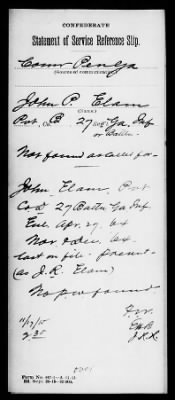 CONFEDERATE
Statement of Service Reference Slip.
Com Pen Ga
(Source of communication)
John P. Elam
(Name)
Pvt, Co. B 27 Reg. Ga. Inf
or Battn.
Not found as called for—
John Elam, Pvt
Co D 27 Battn Ga Inf
Enl. Apr. 29, 64
Nov. 64
last on file - present -
(as J. R. Elam)
No p w found
11/9/15
2.35
J.R.R.
Form No.